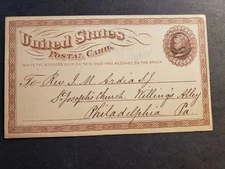 United States
Postal Card.
WRITE THE ADDRESS ONLY ON THIS SIDE - THE MESSAGE ON THE OTHER
To Rev. J. M. Ardia S.J.
St Joseph's Church Willing's Alley
Philadelphia Pa